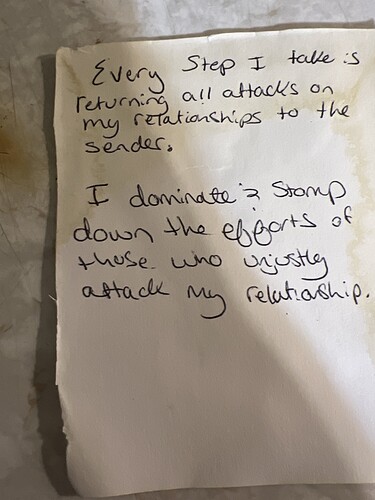 Every Step I take is
returning all attacks on
my relationships to the
sender.
I dominate & Stomp
down the efforts of
those who unjustly
attack my relationship.